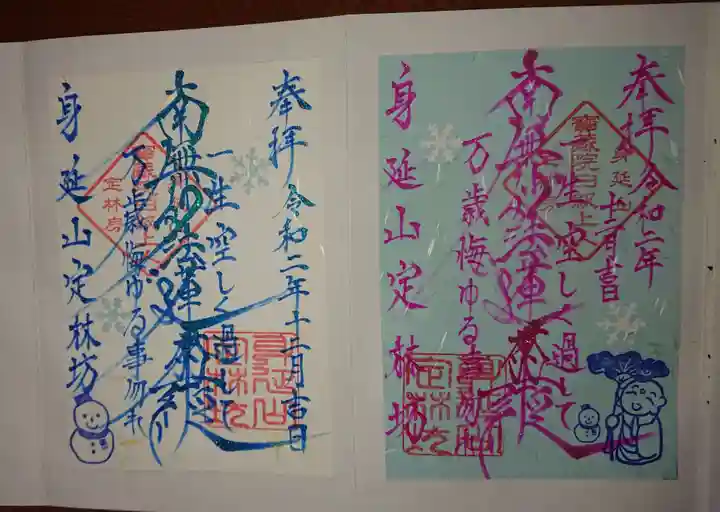 奉拝 令和二年
十二月吉日
一生空しく過して
南無妙法蓮華経
万歳悔ゆる事勿れ
身延山定林坊
奉拝 令和二年十二月吉日
一生空しく過して
南無妙法蓮華経
万歳悔ゆる事勿れ
定林房
身延山定林坊